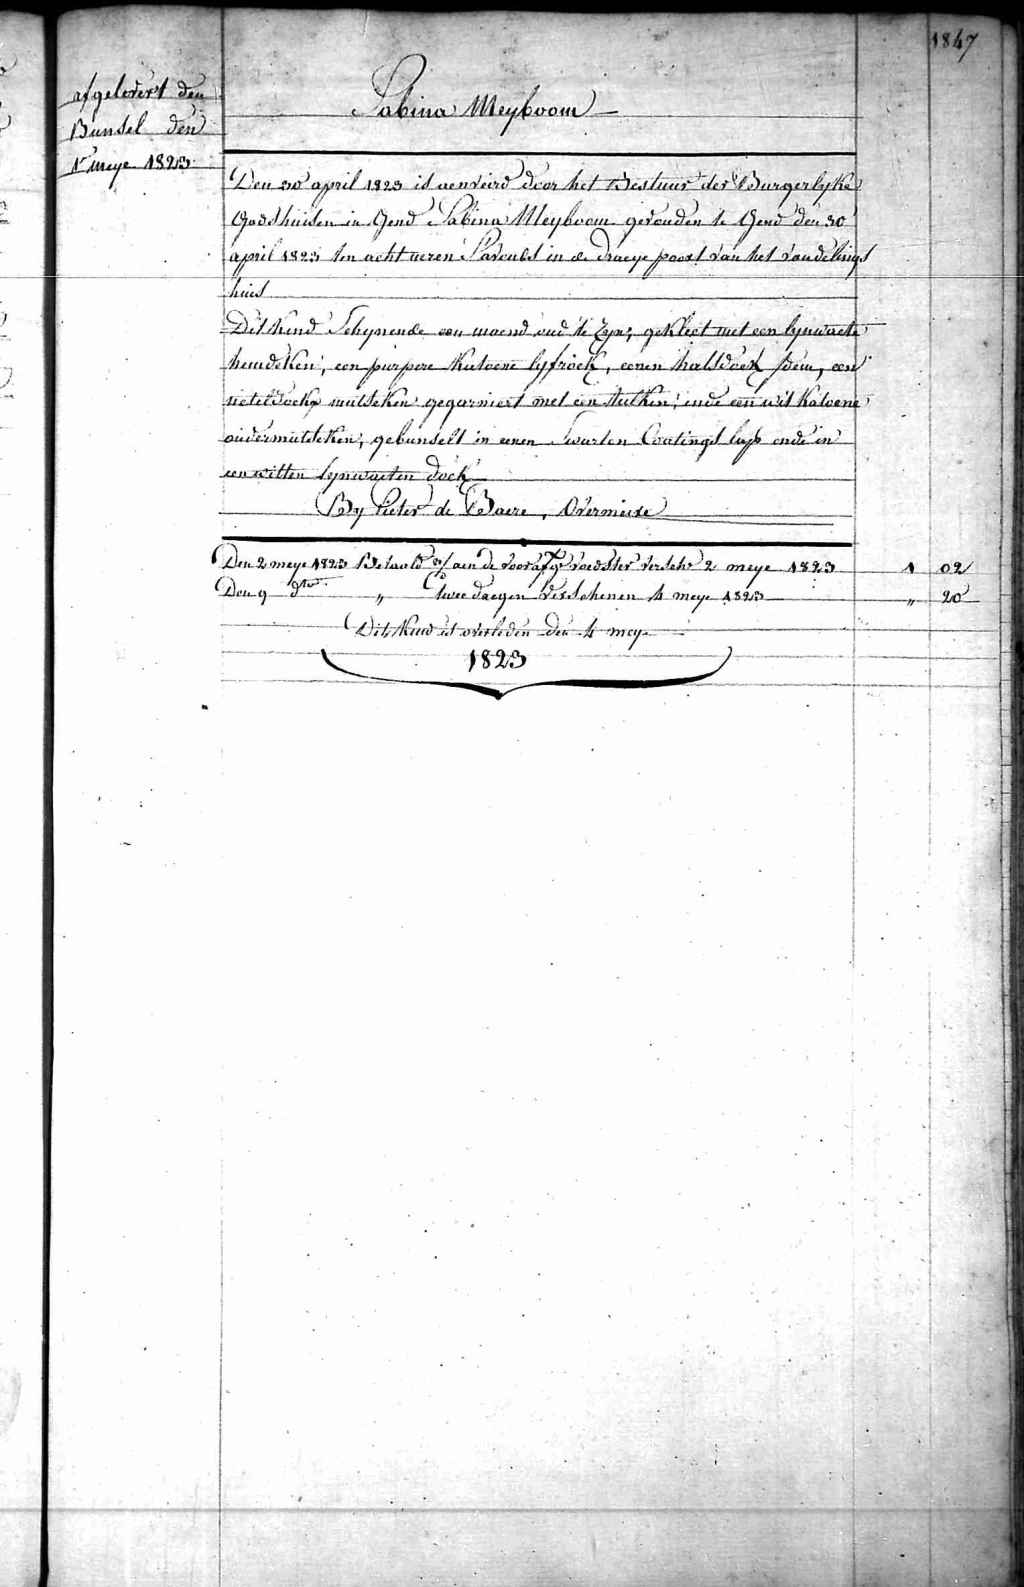 1847
afgelevert den
Bunsel den
1r meye 1823
Sabina Meyboom
Den 30 april 1823 is aenveird door het Bestuur der Burgerlyke
Godshuisen in Gend Sabina Meyboom gevonden te Gend den 30
april 1823 ten acht uren 's avonds in de draeye poort van het vondelings
huis
Dit kind schynende een maend oud te zyn; gekleet met een lynwaete
hemdeken; een purpore katoene lyfrock, eenen halsdoek idem, een
neteldoekx mutseken gegarniert met een stutken; ende een wit katoene
ondermutseken; gebunselt in eenen swarten Coatings lap ende in
een witten lynwaeten doek
By Pieter de Baere, Overmeire
Den 2 meye 1823 Betaald aen de voorafge voedster versche 2 meye 1823 1 02
Den 9 dto " twee daegen verschenen 4 meye 1823 " 20
Dit kind is overleden den 4 mey
1823